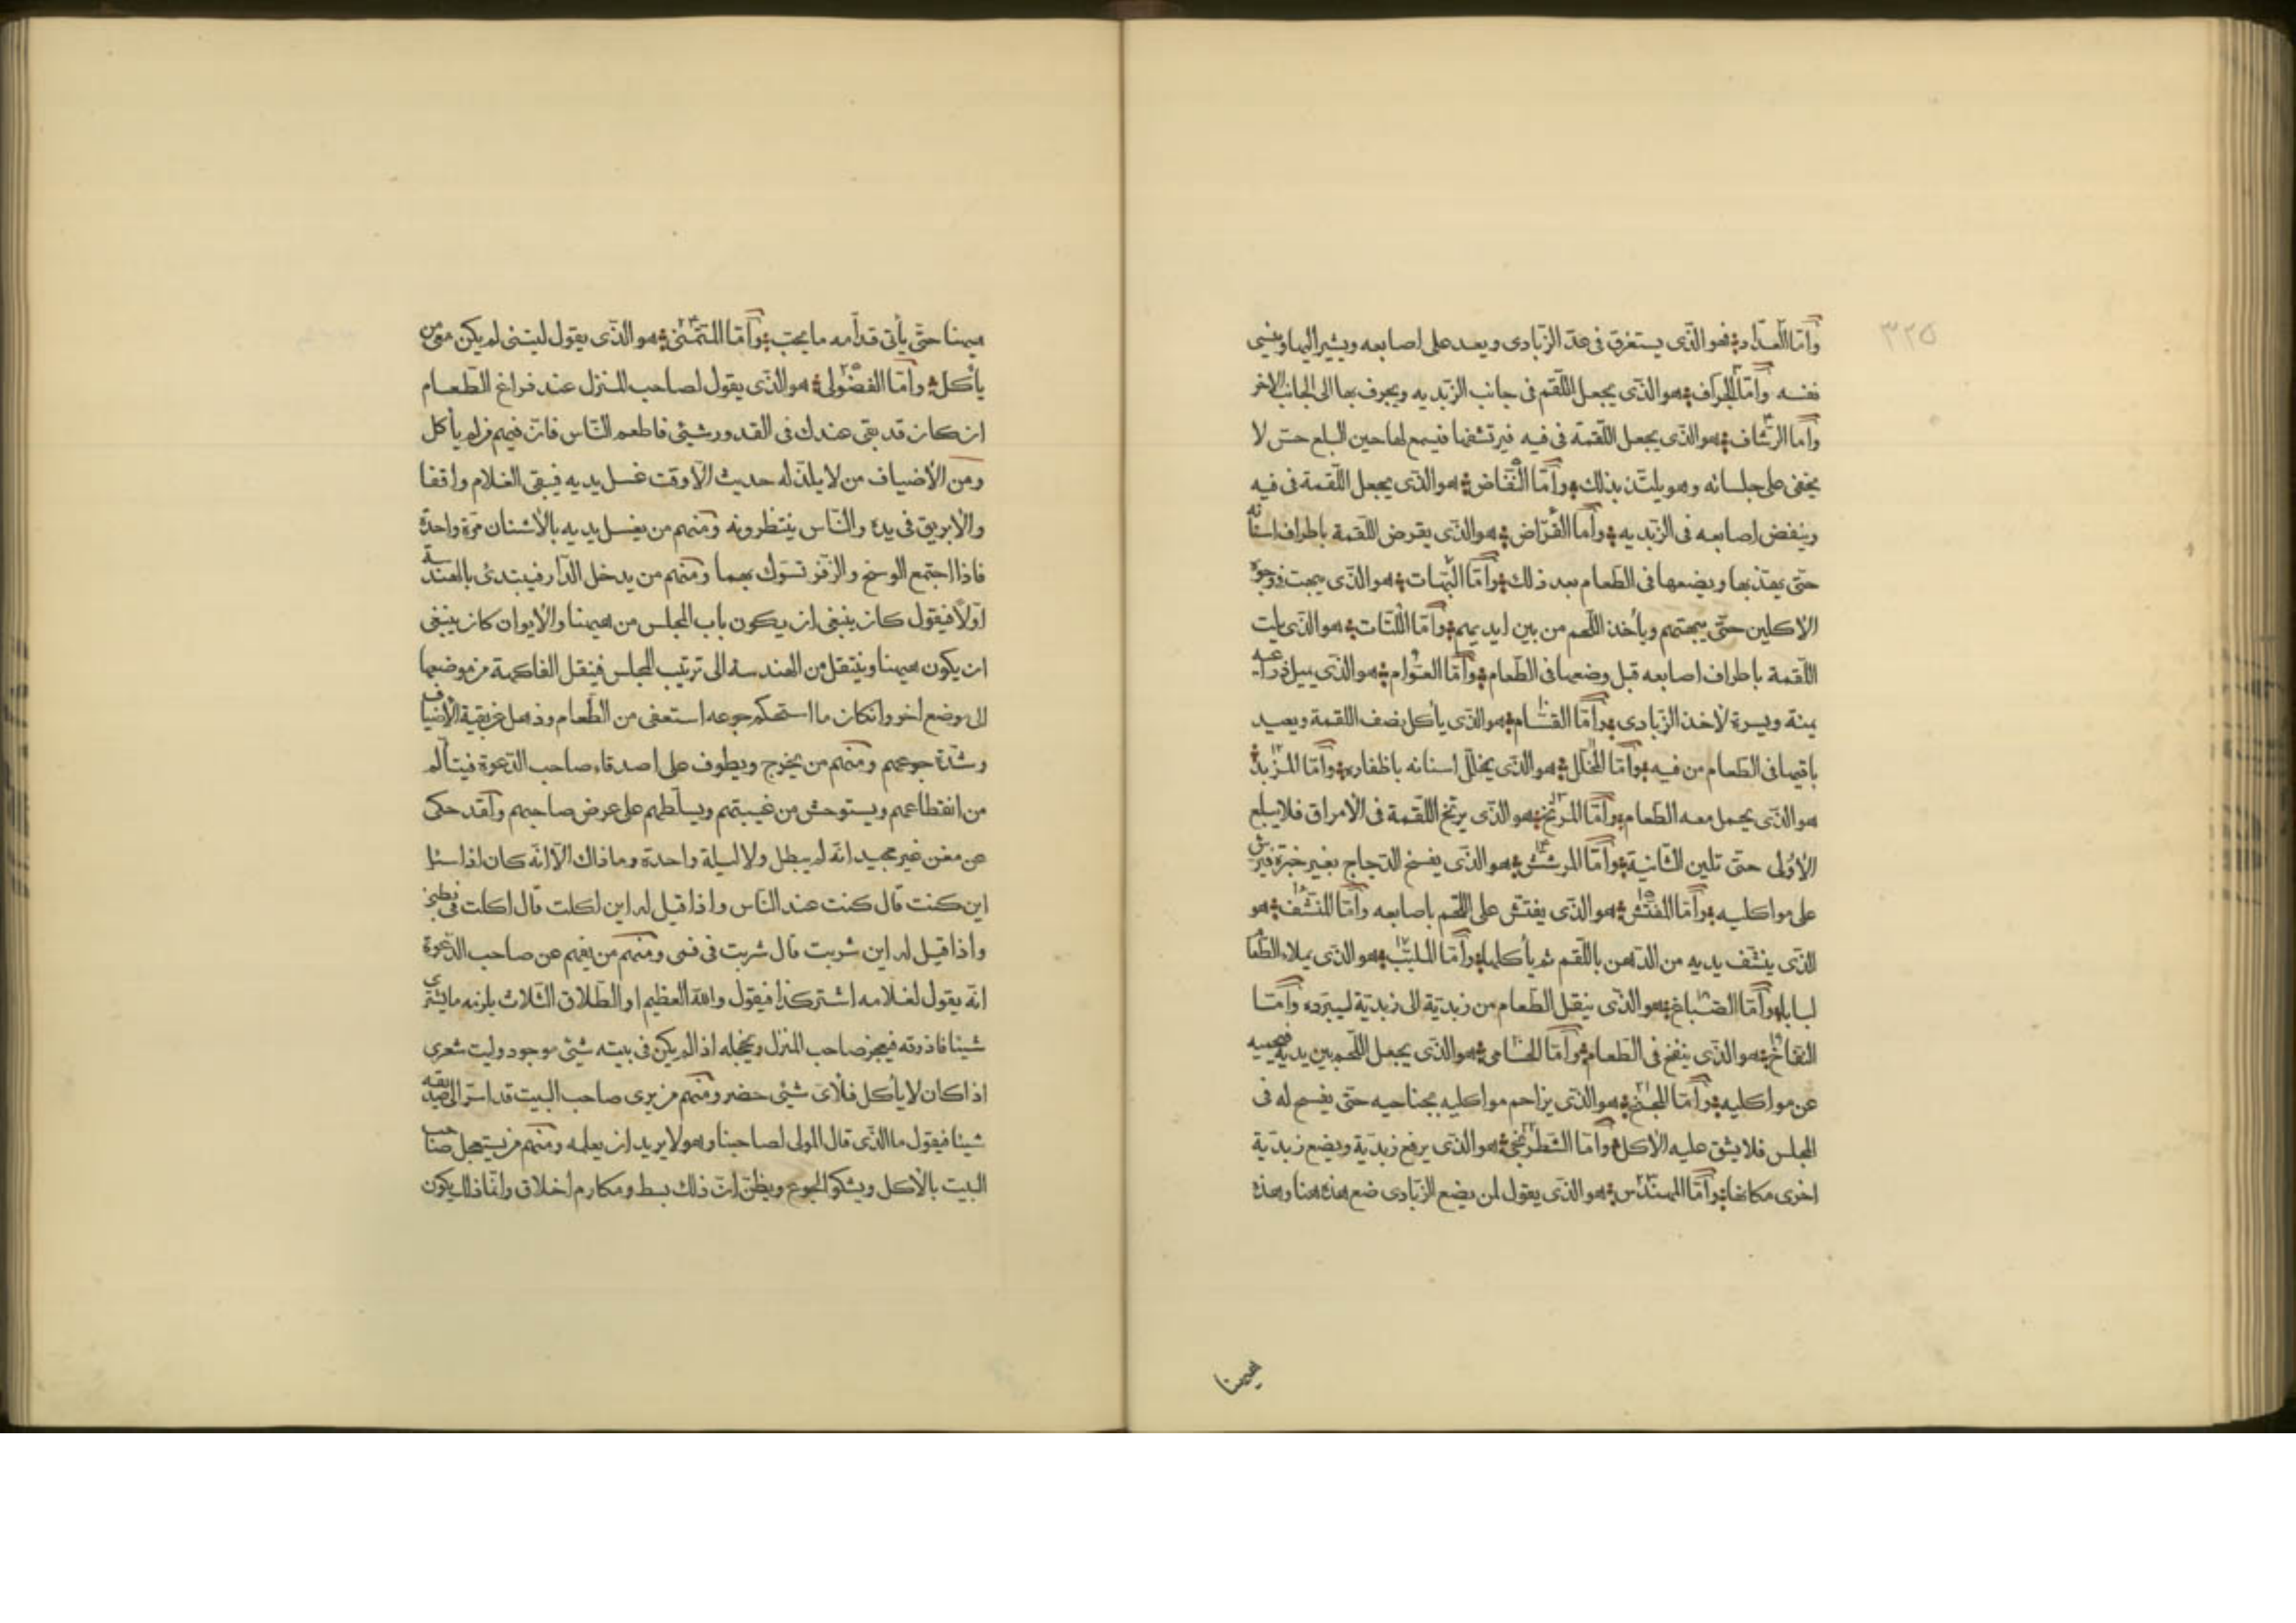 ٣٢٥
وأمّا العدّاد فهو الذّى يستغرق فى عدّ الزّبادى ويعد على اصابعه ويشير اليها وينسى
نفسه وأمّا الجرّاف هو الذّى يجعل اللّقم فى جانب الزّبديه ويجرف بها الى الجانب الاخر
وأمّا الرّشّاف هو الذّى يجعل اللّقمة فى فيه فيرتشفها فيسمع لها حين البلع حسّ لا
يخفى على جلسائه وهو يلتذ بذلك وأمّا النّفّاض هو الذّى يجعل اللّقمة فى فيه
وينفض اصابعه فى الزّبديه وأمّا القرّاض هو الذّى يقرض اللّقمة باطراف اسنانه
حتّى يهذبها ويضعها فى الطّعام بعد ذلك وأمّا البهّات هو الذّى يبهت فى وجوه
الاكلين حتّى يبهتهم ويأخذ اللّحم من بين ايديهم وأمّا اللّتّات هو الذّى يلت
اللّقمة باطراف اصابعه قبل وضعها فى الطّعام وأمّا العوّام هو الذّى يميل ذراعيه
يمنة ويسرة لأخذ الزّبادى وأمّا القسّام هو الذّى يأكل نصف اللقمة ويعيد
باقيها فى الطعام من فيه وأمّا المخلّل هو الذّى يخلّل اسنانه باظفاره وأمّا المزبد
هو الذّى يحمل معه الطّعام وأمّا المرنّخ هو الذّى يرنّخ اللّقمة فى الأمراق فلا يبلع
الأولى حتّى تلين الثّانية وأمّا المرشّش هو الذّى يفسخ الدّجاج بغير خبرة فيرش
على مواكليه وأمّا المفتّش هو الذّى يفتّش على اللّحم باصابعه وأمّا المنشّف هو
الذّى ينشّف يديه من الدّهن باللّقم ثم يأكلها وأمّا الملبّب هو الذّى يملاء الطّعام
لبابا وأمّا الصّبّاغ هو الذّى ينقل الطّعام من زبديّة الى زبديّة ليبرده وأمّا
النفّاخ هو الذّى ينفخ فى الطّعام وأمّا الحامى هو الذّى يجعل اللّحم بين يديه فيحميه
عن مواكليه وأمّا المجنّح هو الذّى يزاحم مواكليه بجناحيه حتّى يفسح له فى
المجلس فلا يشق عليه الأكل وأمّا الشّطرنجى هو الذّى يرفع زبديّة ويضع زبديّة
اخرى مكانها وأمّا المهندّس هو الذّى يقول لمن يضع الزّبادى ضع هذه هنا وهذه
هيهنا
هيهنا حتّى يأتى قدّامه ما يحبّ وأمّا المتمنّى هو الذّى يقول ليتنى لم يكن معى من
يأكل وأمّا الفضولى هو الذّى يقول لصاحب المنزل عند فراغ الطّعام
ان كان قد بقى عندك فى القدور شيئى فاطعم النّاس فان فيهم من لم يأكل
ومن الأضياف من لا يلذّ له حديث الّا وقت غسل يديه فيبقى الغلام واقفا
والابريق فى يده والنّاس ينتظرونه ومنهم من يغسل يديه بالأشنان مرّة واحدة
فاذا اجتمع الوسخ والزّفر تسوّك بهما ومنهم من يدخل الدّار فيبتدئ بالهندسة
اوّلًا فيقول كان ينبغى ان يكون باب المجلس من هيهنا والأيوان كان ينبغى
ان يكون هيهنا وينتقل من الهندسة الى ترتيب المجلس فينقل الفاكهة من موضعها
الى موضع اخر وان كان ما استحكم جوعه استعفى من الطّعام وذهل عن بقية الأضياف
وشدّة جوعهم ومنهم من يخرج ويطوف على اصدقاء صاحب الدّعوة فيتألّم
من انقطاعهم ويستوحش من غيبتهم ويسلّطهم على عرض صاحبهم ولقد حكى
عن مغن غير مجيد انّه لم يبطل ولا ليلة واحدة وما ذاك الّا انّه كان اذا سئل
اين كنت قال كنت عند النّاس واذا قيل له اين اكلت قال اكلت فى
واذا قيل له اين شربت قال شربت فى فمى ومنهم من يفهم عن صاحب الدّعوة
انّه يقول لغلامه اشتر كذا فيقول والله العظيم او الطّلاق الثّلاث يلزمه ما يشترى
شيئا فاذوقه فيعجز صاحب المنزل ويخجله اذا لم يكن فى بيته شيئ موجود وليت شعرى
اذا كان لا يأكل فلأىّ شيئى حضر ومنهم من يرى صاحب البيت قد اسرّ الى صديقه
شيئا فيقول ما الذّى قال المولى لصاحبنا وهو لا يريد ان يعلمه ومنهم من يستعجل صاحب
البيت بالأكل ويشكو الجوع ويظنّ انّ ذلك بسط ومكارم أخلاق وانّما ذلك يكون